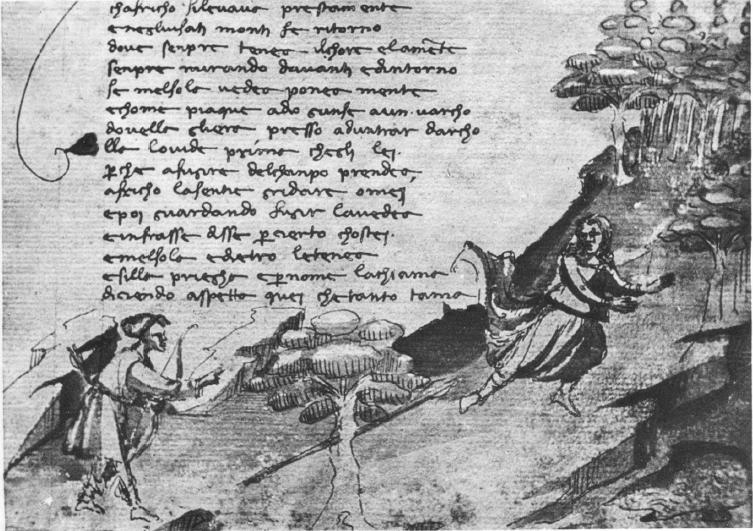 chafricho silevava prestamente
enegliusati monti fe ritorno
dove senpre tenea ilchore elamēte
senpre mirando davanti edintorno
se melsola vedea ponea mente
echome piaque ado gunse aun varcho
dovella gliera presso aduntrar darcho
lla lovide prima chegli lei.
pche afugire delchanpo prendea
africho lasentie gridare omei
epoi guardando fugir lavedea
einfrasse disse pcierto chostei.
emelsola edietro letenea
esilla priegha epnome lachiama
diciendo aspetta quei chetanto tama